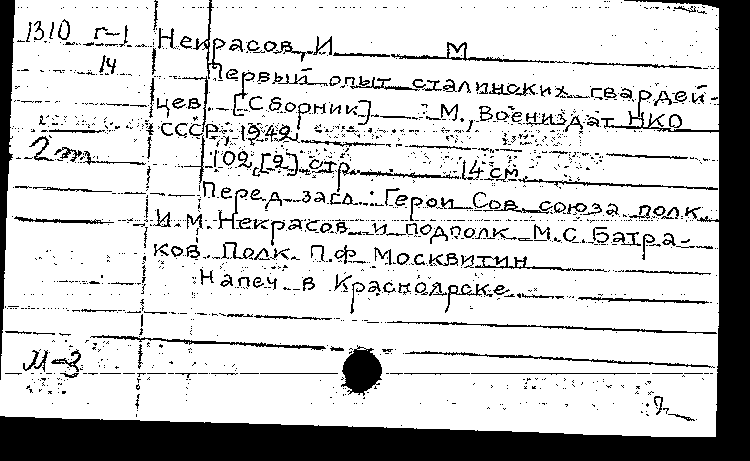 1310 г-1
14
Некрасов, И М
Первый опыт сталинских гвардей-
цев. [Сборник] М., Воениздат НКО
СССР, 1942.
2 т
102, [2] стр. 14 см.
Перед загл.: Герои Сов. союза полк.
И.М. Некрасов и подполк. М.С. Батра-
ков. Полк. П.Ф. Москвитин
Напеч. в Красноярске.
М-3